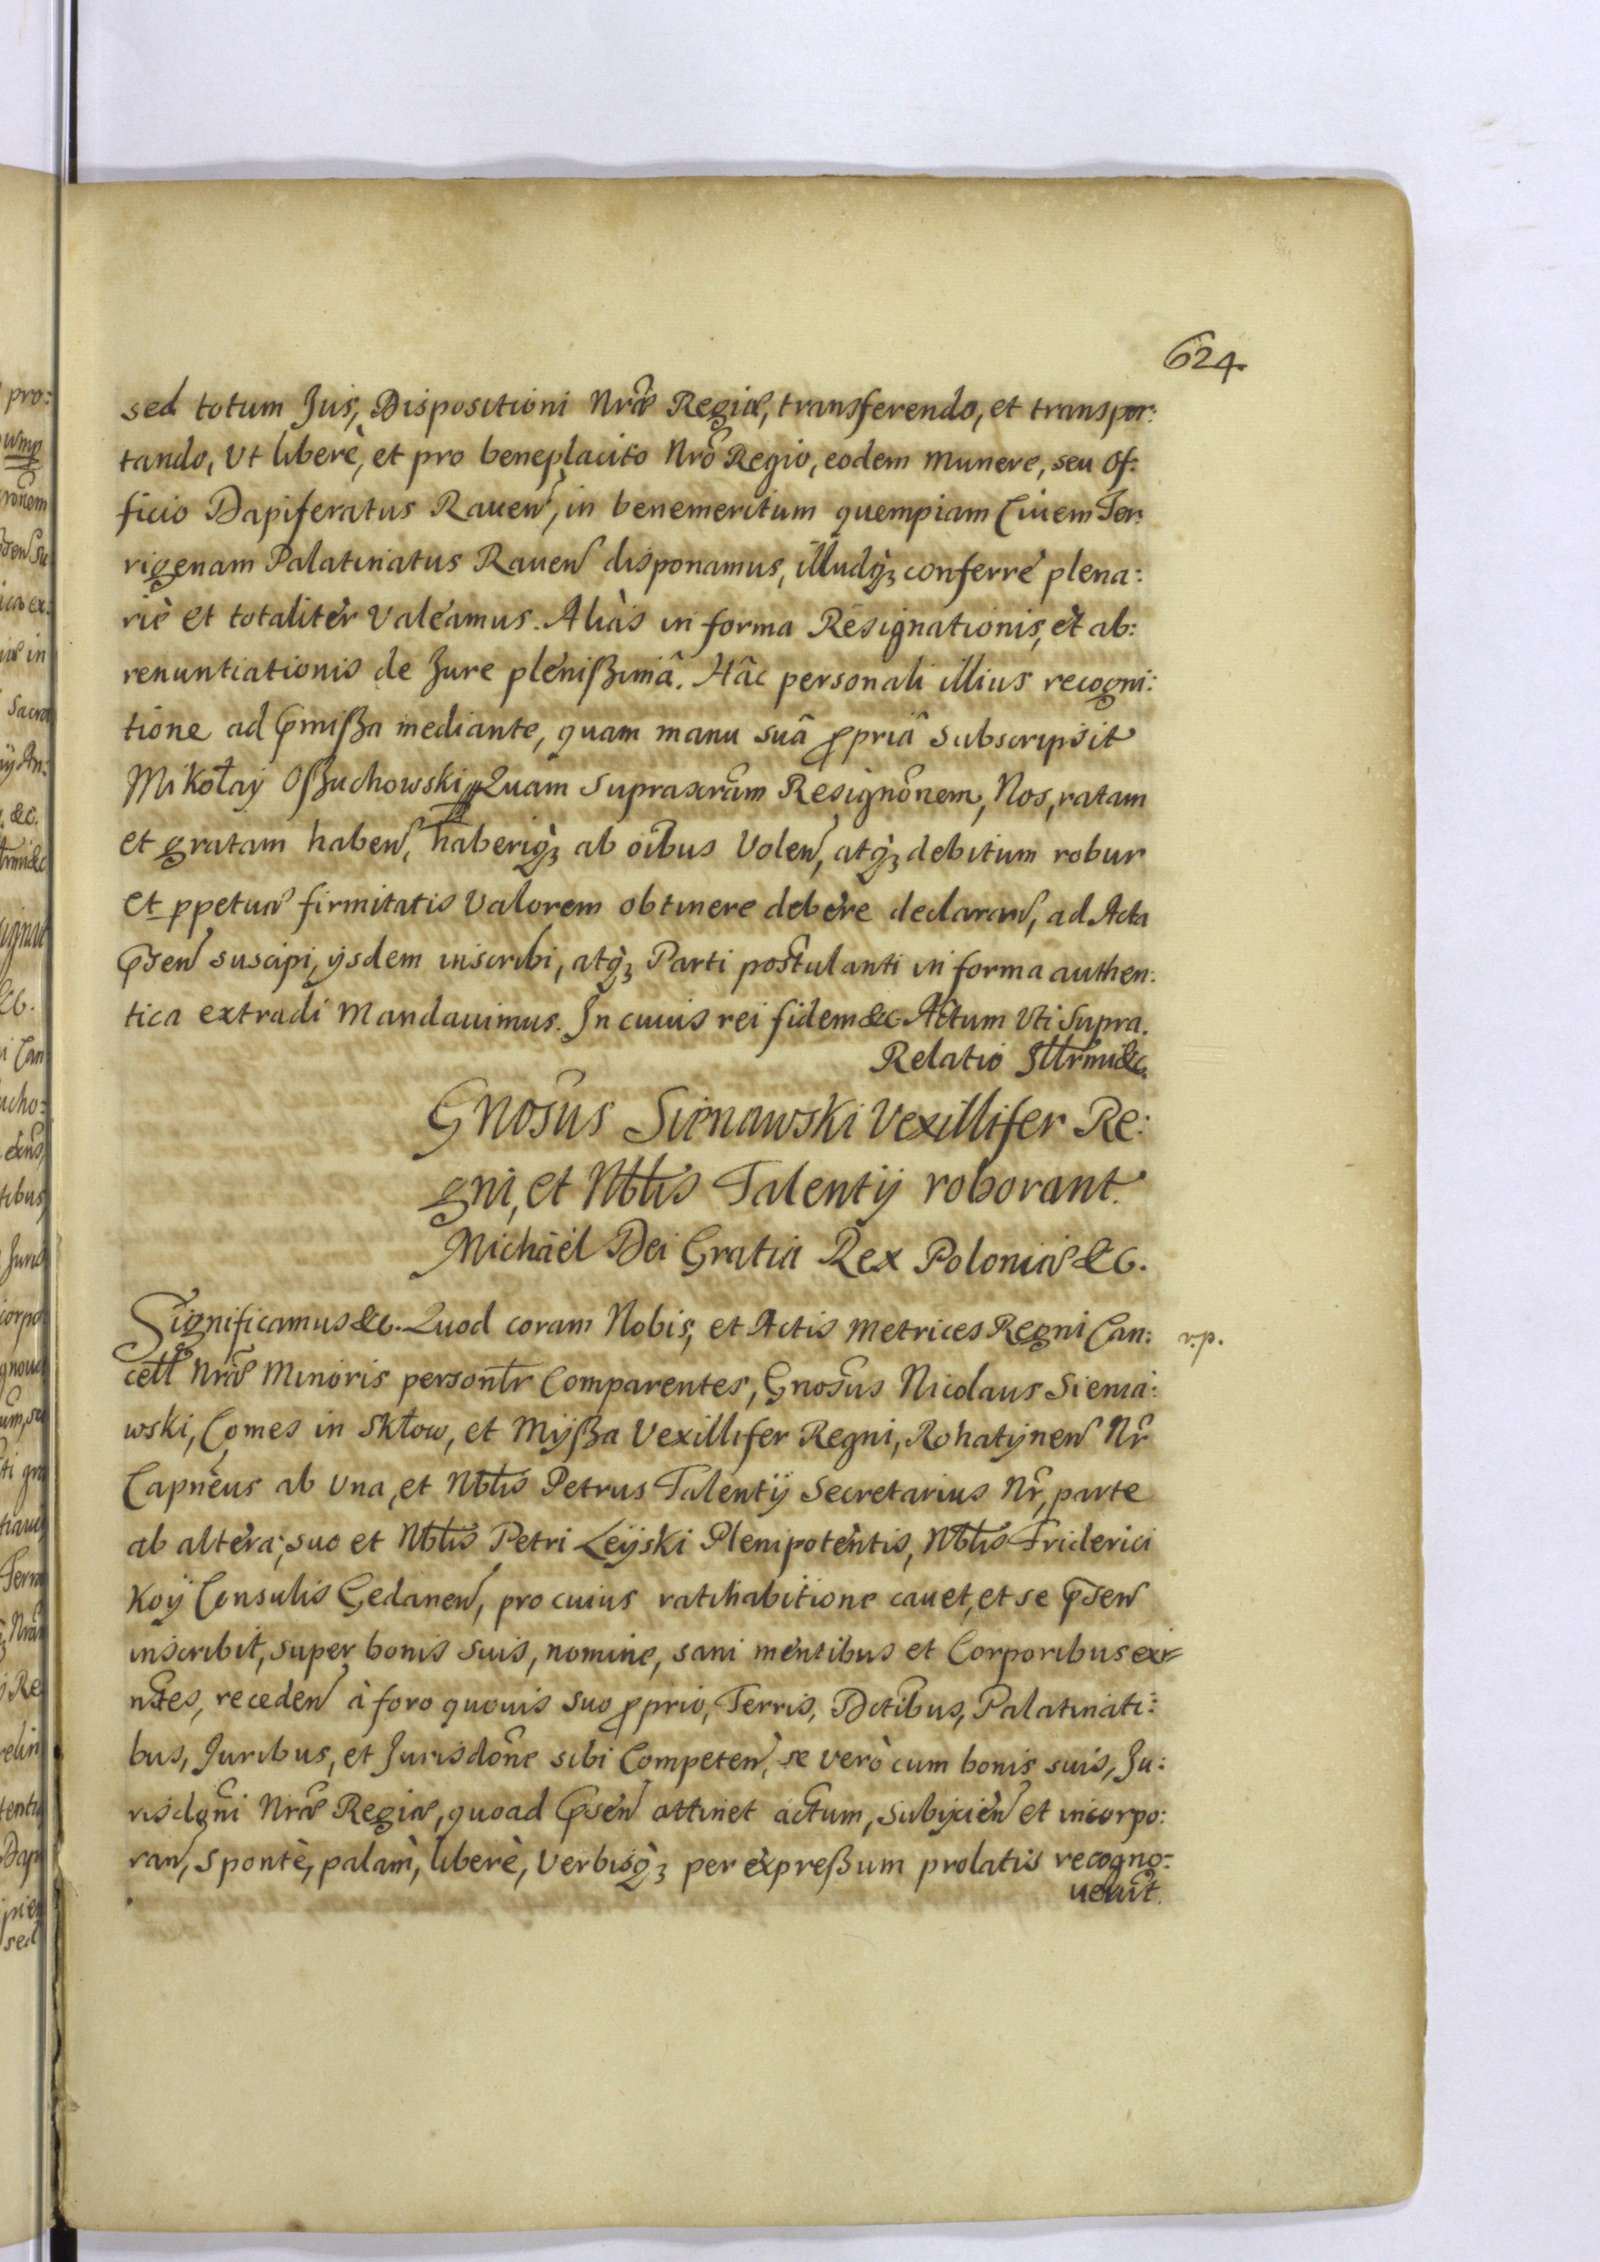 624.
sed totum Jus, Dispositioni Nræ Regiæ, transferendo, et transpor:
tando, Ut liberè, et pro beneplacito Nrõ Regio, eodem munere, seu Of:
ficio Dapiferatus Raven, in benemeritum quempiam Civem Ter:
rigenam Palatinatus Raven disponamus, illudq3 conferre plena:
riè et totalitèr Valeamus. Aliàs in forma Resignationis, et ab:
renuntiationis de Jure plenißimâ. Hâc personali illius recogni:
tione ad p̃mißa mediante, quam manu suâ ꝓpriâ subscripsit
Mikołaÿ Oßuchowski Quam suprascrãm Resignõnem, Nos, ratam
et gratam haben, haberiq3 ab oĩbus Volen, atq3 debitum robur
et ꝑpetuæ firmitatis Valorem obtinere debère declaran, ad Acta
p̃sen suscipi, ÿsdem inscribi, atq3 Parti postulanti in forma authen:
tica extradi Mandavimus. In cuius rei fidem &c. Actum Uti Supra.
Relatio Illrmi &c.
Gnõsus Sienawski Vexillifer Re:
gni, et Nblis Talentÿ roborant.
Michäel Dei Gratia Rex Poloniæ &c.
Significamus &c. Quod coram Nobis, et Actis Metrices Regni Can:
r.p.
cell Nræ Minoris personlr Comparentes, Gnõsus Nicolaus Sienia:
wski, Comes in Skłow, et Mÿßa Vexillifer Regni, Rohatÿnen Nr̃
Capnẽus ab Una, et Nblis Petrus Talentÿ Secretarius Nr̃, parte
ab altera; suo et Nblis Petri Leÿski Plenipotèntis, Nblis Friderici
Koÿ Consulis Gedanen, pro cuius ratihabitione cavet, et se p̃sen
inscribit, super bonis suis, nomine, sani mentibus et Corporibus exi=
ntes, receden à foro quovis suo ꝓprio, Terris, Dctibus, Palatinati:
bus, Juribus, et Jurisdõne sibi Competen, se verò cum bonis suis, Ju:
risdõni Nræ Regiæ, quoad p̃sen attinet actum, subÿcien et incorpo:
ran, Spontè, palàm, liberè, Verbisq3 per èxpreßum prolatis recogno:
verũt.